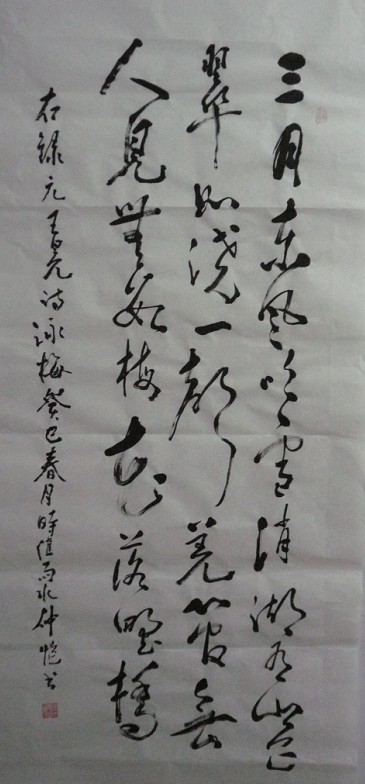 三月东风吹雪消湖南山色
翠如浇一声羌管無
人見無数梅花落野橋
右録元王冕诗咏梅癸巳春月時值雨水仲恺书